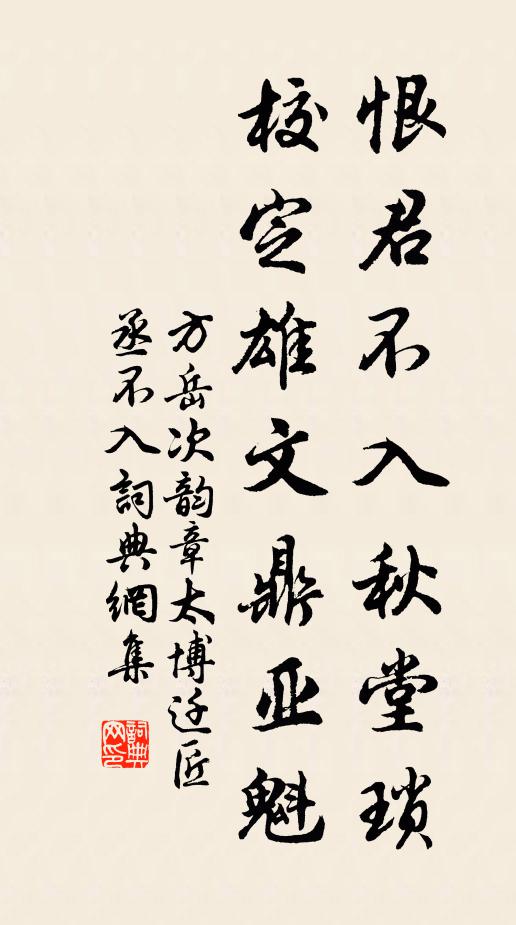 恨君不入秋堂瑣
校定雄文鼎亚魁
方岳次韵章太博迁匠
丞不入詞典網集
詞典
网印